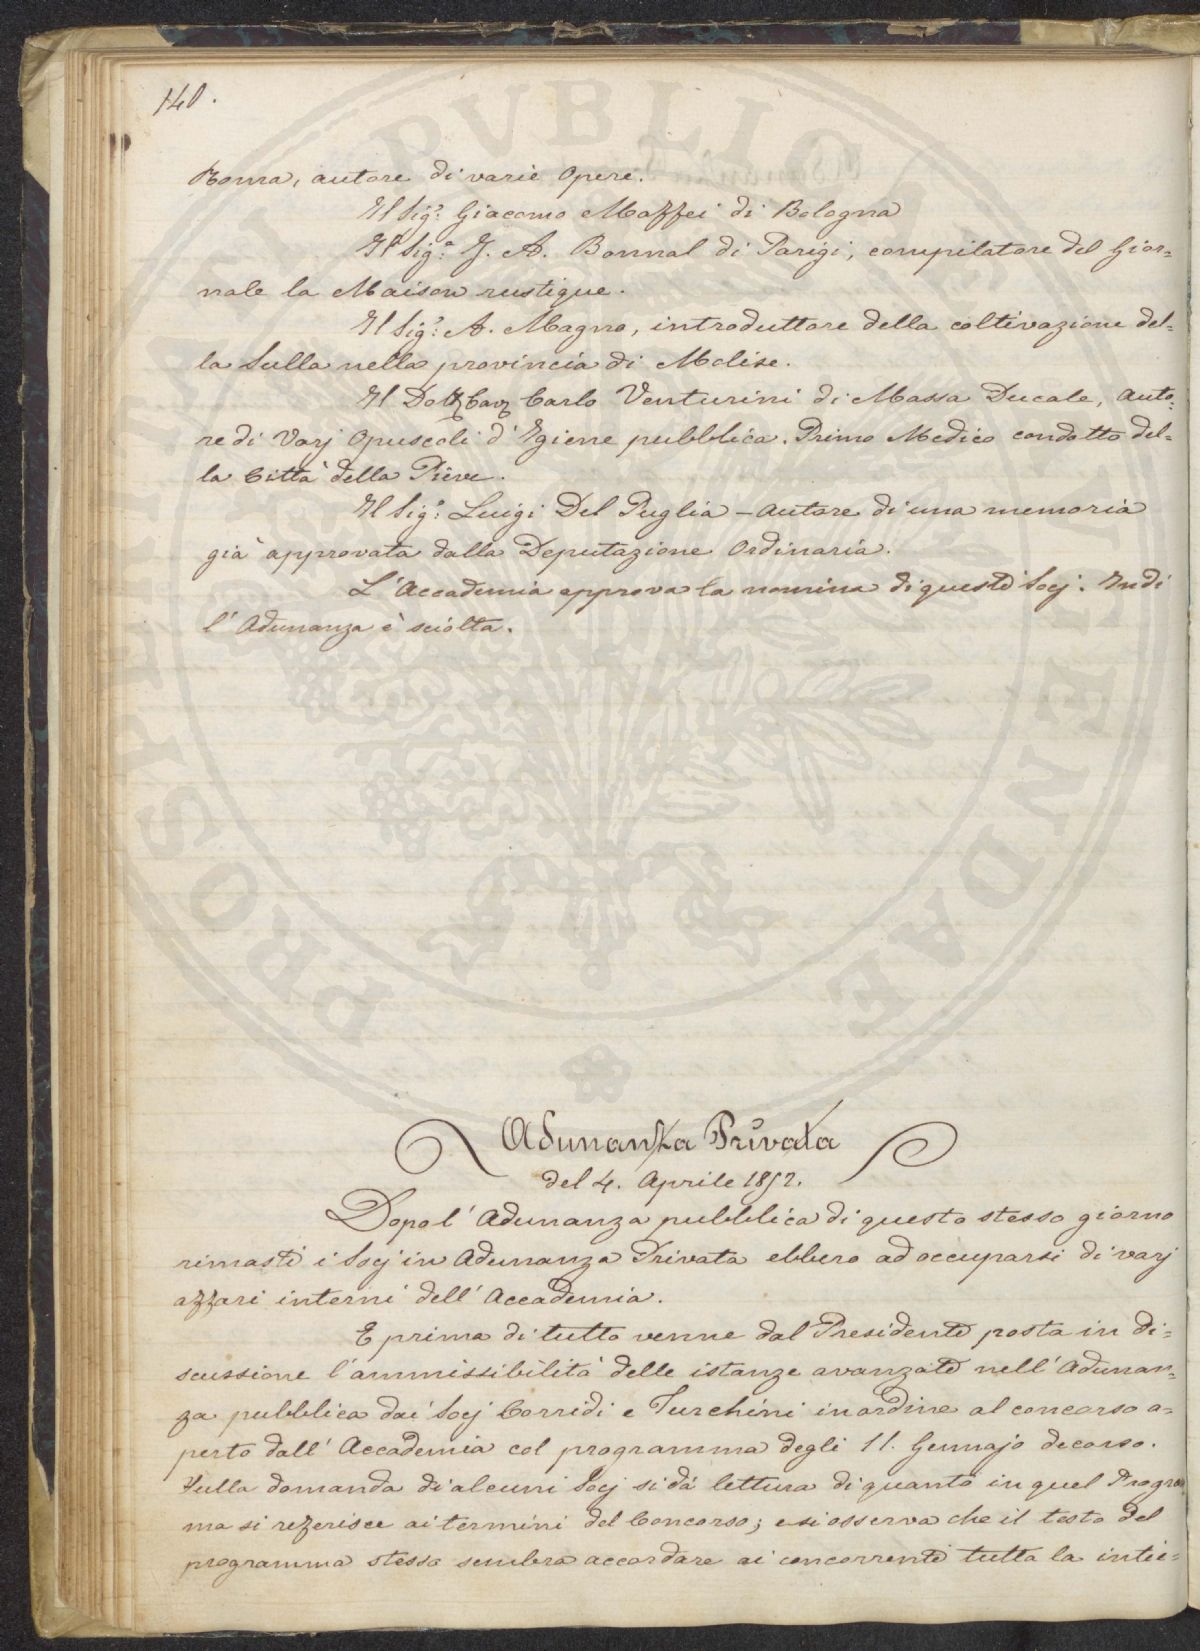 140.
Roma, autore di varie Opere.
Il Sigr. Giacomo Maffei di Bologna
Il Sigr. J. A. Bonnal di Parigi, compilatore del Gior=
nale la Maison rustique.
Il Sigr. A. Magno, introduttore della coltivazione del=
la Sulla nella provincia di Molise.
Il Dott. Cav. Carlo Venturini di Massa Ducale, Auto=
re di Varj Opuscoli d'Igiene pubblica. Primo Medico condotto del=
la Città della Pieve.
Il Sigr. Luigi Del Puglia - Autore di una memoria
già approvata dalla Deputazione Ordinaria.
L'Accademia approva la nomina di questi Socj. Indi
l'Adunanza è sciolta.
Adunanza Privata
del 4. Aprile 1852.
Dopo l'Adunanza pubblica di questo stesso giorno
rimasti i Socj in Adunanza Privata ebbero ad occuparsi di varj
affari interni dell'Accademia.
E prima di tutto venne dal Presidente posta in di=
scussione l'ammissibilità delle istanze avanzate nell'Adunan=
za pubblica dai Socj Corridi e Turchini in ordine al concorso a=
perto dall'Accademia col programma degli 11. Gennajo decorso.
Sulla domanda di alcuni Socj si dà lettura di quanto in quel Progra
ma si referisce ai termini del Concorso; e si osserva che il testo del
programma stesso sembra accordare ai concorrenti tutta la intie=
PROSPERITATI PVBLICAE AVGENDAE